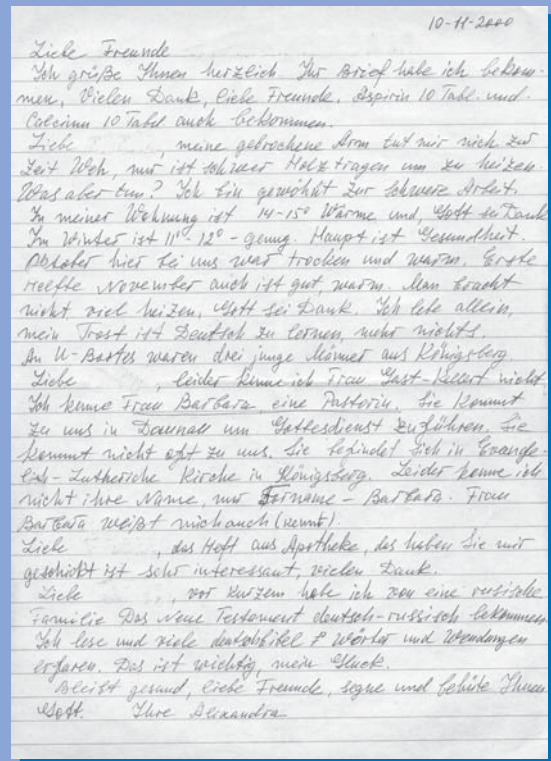 10-11-2000
Liebe Freunde
Ich grüße Ihnen herzlich. Ihr Brief habe ich bekom-
men, Vielen Dank, liebe Freunde. Aspirin 10 Tabl. und
Calcium 10 Tabl auch bekommen.
Liebe , meine gebrochene Arm tut mir nich zur
Zeit Weh, nur ist schwer Holz tragen um zu heizen.
Was aber tun? Ich bin gewöhnt zur schwere Arbeit.
In meiner Wohnung ist 14-15° Wärme und, Gott sei Dank
Im Winter ist 11°-12° - genug. Haupt ist Gesundheit.
Oktober hier bei uns war trocken und warm. Erste
Helfte November auch ist gut warm. Man braucht
nicht viel heizen, Gott sei Dank. Ich lebe allein,
mein Trost ist Deutsch zu lernen, mehr nichts.
An waren drei junge Männer aus Königsberg.
Liebe , leider kenne ich Frau nicht
Ich kenne Frau Barbara eine Pastorin. Sie kommt
zu uns in um Gottesdienst zu führen. Sie
kommt nicht oft zu uns. Sie befindet sich in Evange-
lich-Lutheriche Kirche in Königsberg. Leider kenne ich
nicht ihre Name, nur Vorname - Barbara. Frau
Barbara weißt mich auch (kennt).
Liebe , das Heft aus Apotheke, das haben Sie mir
geschickt ist sehr interessant, vielen Dank.
Liebe , vor kurzem habe ich von eine rusische
Familie Das Neue Testament deutsch-russisch bekommen
Ich lese und viele Wörter und Wendungen
erfaren. Das ist wichtig, mein Glück.
Bleibt gesund, liebe Freunde, segne und behüte Ihnen
Gott. Ihre Alixandra